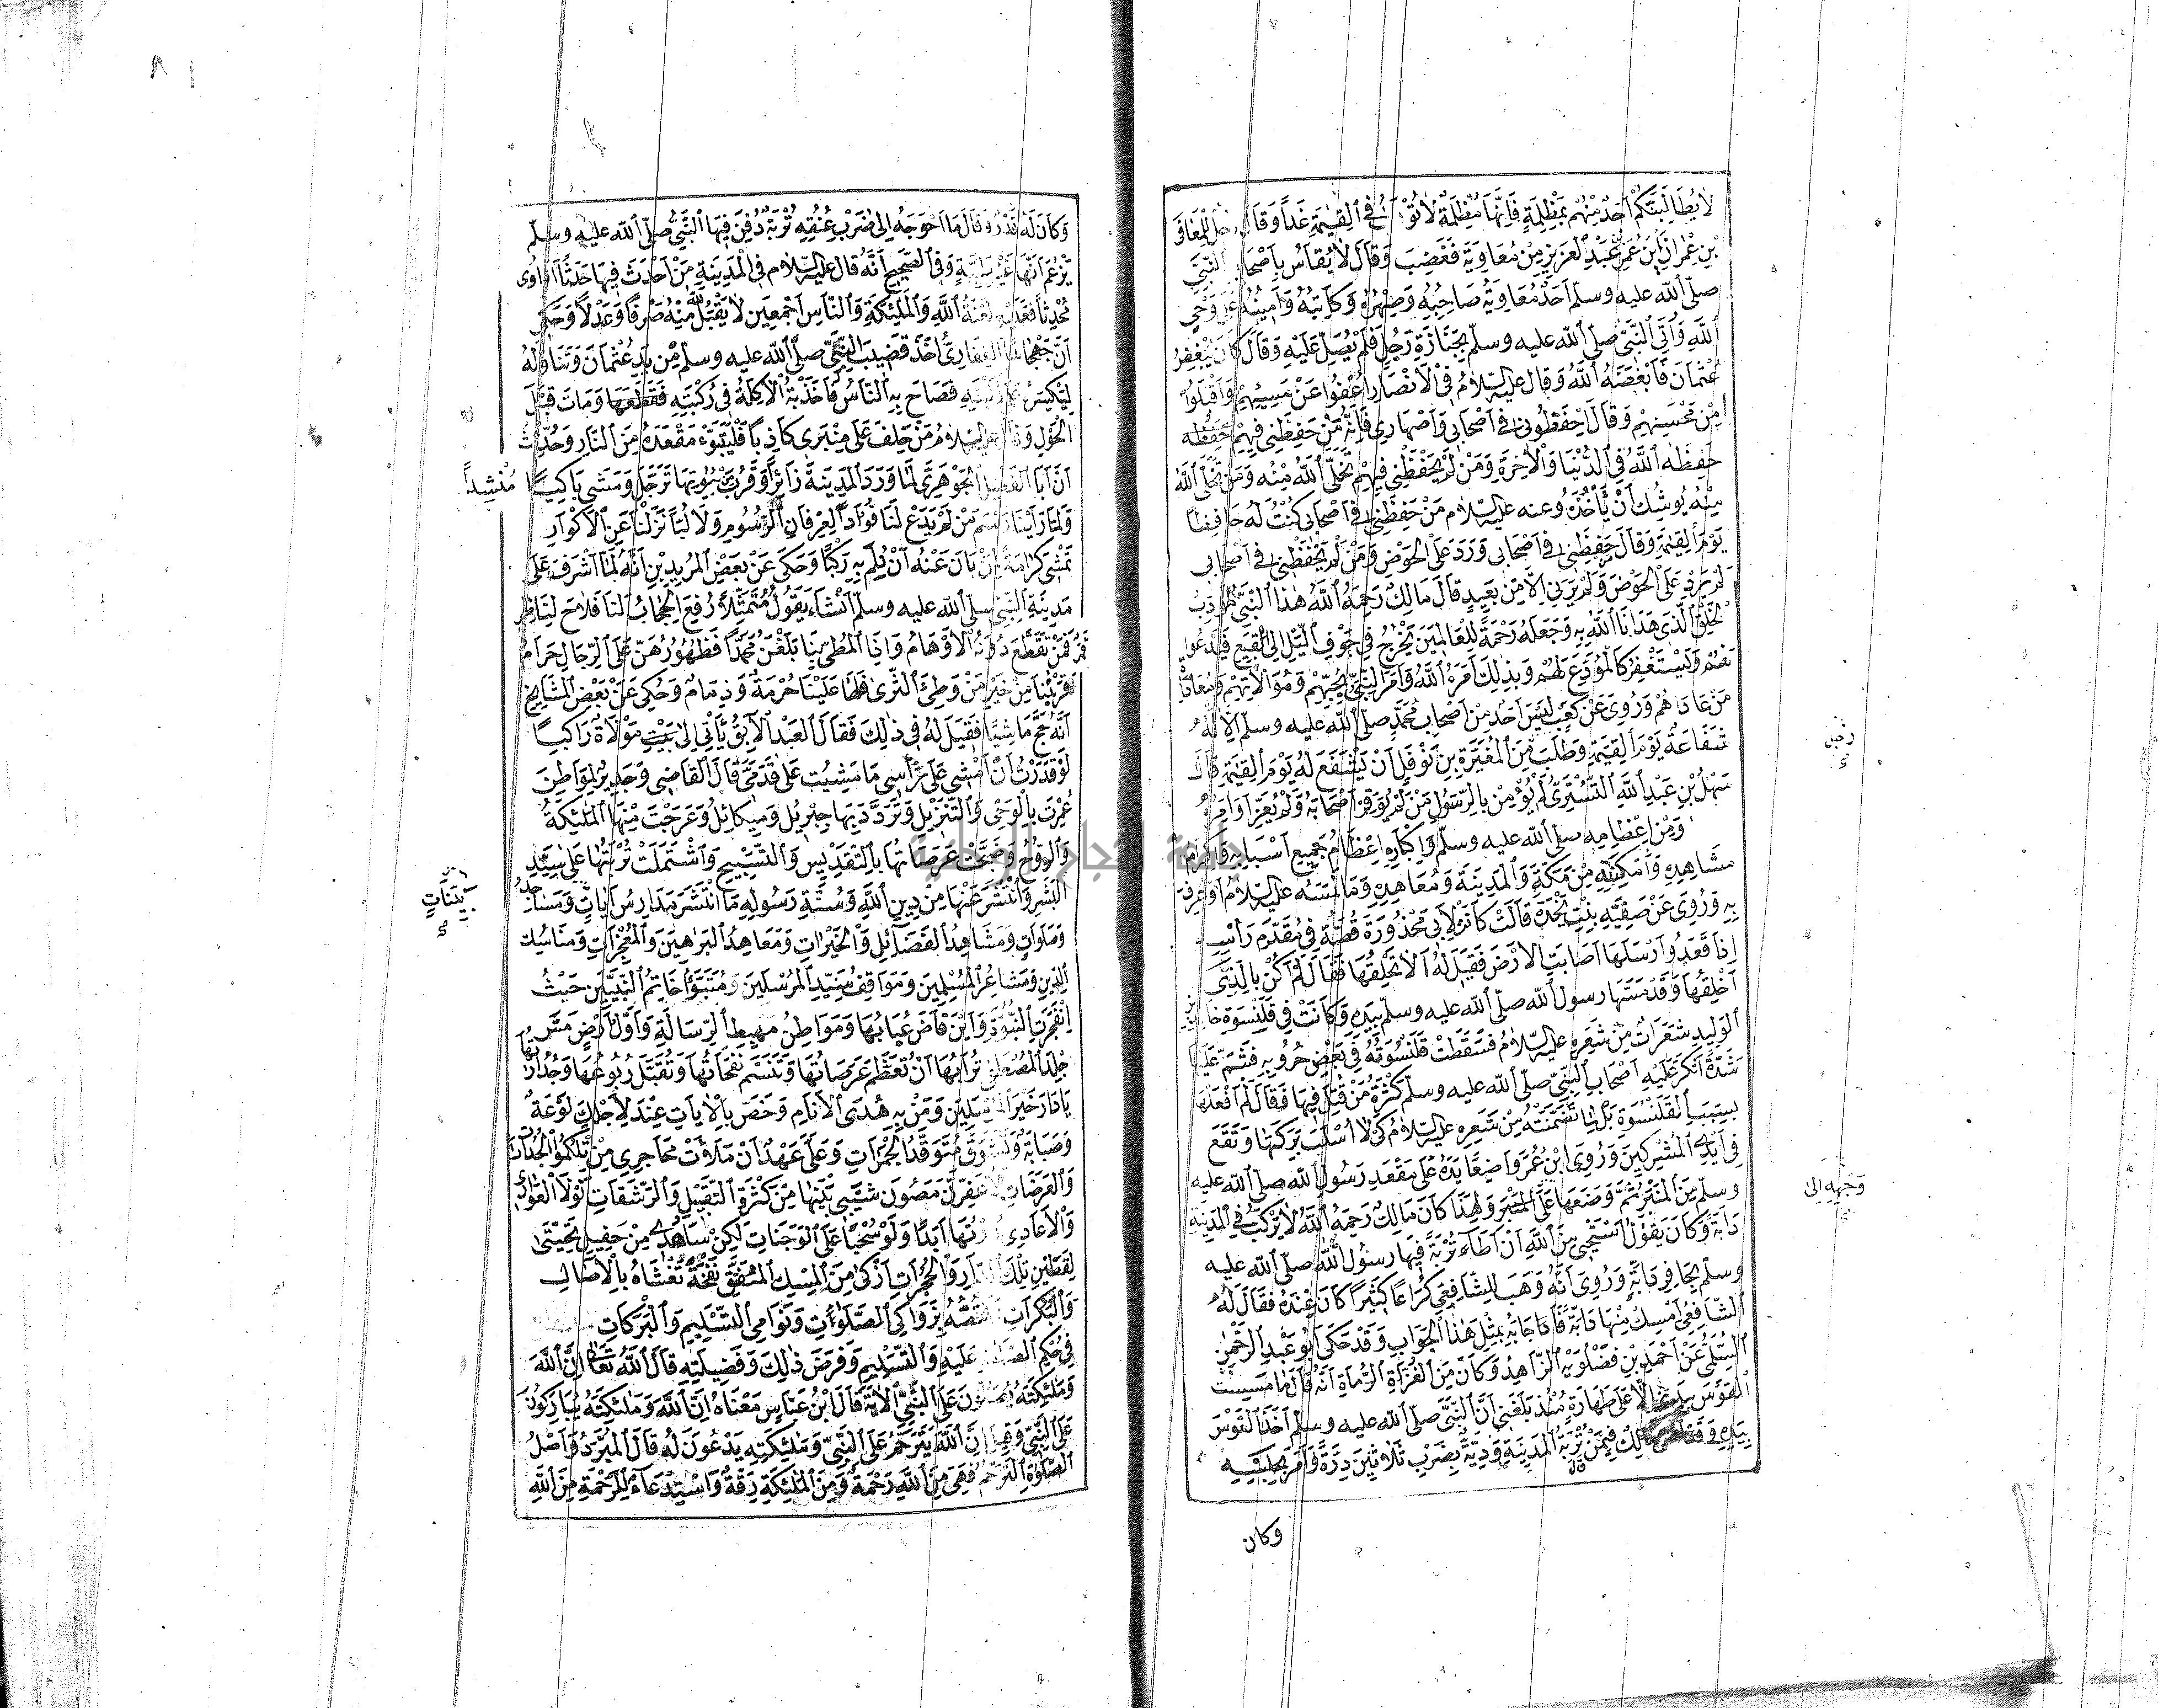 لَا يُطَالِبَنَّكُمْ أَحَدٌ مِنْهُمْ بِمَظْلِمَةٍ فَإِنَّهَا مَظْلِمَةٌ لَا تُوْهَبُ فِي الْقِيٰمَةِ غَدًا وَقَالَ رَجُلٌ لِلْمُعَافَى
بْنِ عِمْرَانَ أَيْنَ عُمَرُ بْنُ عَبْدِ الْعَزِيزِ مِنْ مُعَاوِيَةَ فَغَضِبَ وَقَالَ لَا يُقَاسُ بِأَصْحَابِ النَّبِيِّ
صلّى الله عليه وسلم أَحَدٌ مُعَاوِيَةُ صَاحِبُهُ وَصِهْرُهُ وَكَاتِبُهُ وَأَمِينُهُ عَلَى وَحْيِ
اللهِ وَأُتِيَ النَّبِيُّ صلّى الله عليه وسلم بِجَنَازَةِ رَجُلٍ فَلَمْ يُصَلِّ عَلَيْهِ وَقَالَ كَانَ يُبْغِضُ
عُثْمَانَ فَأَبْغَضَهُ اللهُ وَقَالَ عليه السّلامُ فِي الْأَنْصَارِ اعْفُوا عَنْ مُسِيئِهِمْ وَاقْبَلُوا
مِنْ مُحْسِنِهِمْ وَقَالَ احْفَظُونِي فِي أَصْحَابِي وَأَصْهَارِي فَإِنَّهُ مَنْ حَفِظَنِي فِيهِمْ حَفِظَهُ
حَفِظَهُ اللهُ فِي الدُّنْيَا وَالْآخِرَةِ وَمَنْ لَمْ يَحْفَظْنِي فِيهِمْ تَخَلَّى اللهُ مِنْهُ وَمَنْ تَخَلَّى اللهُ
مِنْهُ يُوشِكُ أَنْ يَأْخُذَهُ وعنه عليه السّلام مَنْ حَفِظَنِي فِي أَصْحَابِي كُنْتُ لَهُ حَافِظًا
يَوْمَ الْقِيٰمَةِ وَقَالَ مَنْ حَفِظَنِي فِي أَصْحَابِي وَرَدَ عَلَيَّ الْحَوْضَ وَمَنْ لَمْ يَحْفَظْنِي فِي أَصْحَابِي
لَمْ يَرِدْ عَلَيَّ الْحَوْضَ وَلَمْ يَرَنِي إِلَّا مِنْ بَعِيدٍ قَالَ مَالِكٌ رَحِمَهُ اللهُ هٰذَا النَّبِيُّ مُؤَدِّبُ
الْخَلْقِ الَّذِي هَدَانَا اللهُ بِهِ وَجَعَلَهُ رَحْمَةً لِلْعَالَمِينَ يَخْرُجُ فِي جَوْفِ اللَّيْلِ إِلَى الْبَقِيعِ فَيَدْعُو
لَهُمْ وَيَسْتَغْفِرُ كَالْمُوَدِّعِ لَهُمْ وَبِذٰلِكَ أَمَرَهُ اللهُ وَأَمَرَ النَّبِيُّ بِحُبِّهِمْ وَمُوَالَاتِهِمْ وَمُعَادَاةِ
مَنْ عَادَاهُمْ وَرُوِيَ عَنْ كَعْبٍ لَيْسَ أَحَدٌ مِنْ أَصْحَابِ مُحَمَّدٍ صلّى الله عليه وسلم إِلَّا لَهُ
شَفَاعَةٌ يَوْمَ الْقِيٰمَةِ وَطَلَبَ مِنَ الْمُغِيرَةِ بْنِ نَوْفَلٍ أَنْ يَشْفَعَ لَهُ يَوْمَ الْقِيٰمَةِ قَالَ
سَهْلُ بْنُ عَبْدِ اللهِ التُّسْتَرِيُّ لَمْ يُؤْمِنْ بِالرَّسُولِ مَنْ لَمْ يُوَقِّرْ أَصْحَابَهُ وَلَمْ يُعِزَّ أَوَامِرَهُ
وَمِنْ إِعْظَامِهِ صلّى الله عليه وسلم وَإِكْبَارِهِ إِعْظَامُ جَمِيعِ أَسْبَابِهِ وَإِكْرَامُ
مَشَاهِدِهِ وَأَمْكِنَتِهِ مِنْ مَكَّةَ وَالْمَدِينَةَ وَمَعَاهِدِهِ وَمَا لَمَسَهُ عليه السّلامُ أَوْ عُرِفَ
بِهِ وَرُوِيَ عَنْ صَفِيَّةَ بِنْتِ نَجْدَةَ قَالَتْ كَانَ لِأَبِي مَحْذُورَةَ قُصَّةٌ فِي مُقَدَّمِ رَأْسِهِ
إِذَا قَعَدَ وَأَرْسَلَهَا أَصَابَتِ الْأَرْضَ فَقِيلَ لَهُ أَلَا تَحْلِقُهَا فَقَالَ لَمْ أَكُنْ بِالَّذِي
أَحْلِقُهَا وَقَدْ مَسَّهَا رسول الله صلّى الله عليه وسلم بِيَدِهِ وَكَانَتْ فِي قَلَنْسُوَةِ خَالِدِ بْنِ
الْوَلِيدِ شَعَرَاتٌ مِنْ شَعَرِهِ عليه السّلامُ فَسَقَطَتْ قَلَنْسُوَتُهُ فِي بَعْضِ حُرُوبِهِ فَشَدَّ عَلَيْهَا
شَدَّةً أَنْكَرَ عَلَيْهِ أَصْحَابُ النَّبِيِّ صلّى الله عليه وسلم كَثْرَةَ مَنْ قُتِلَ فِيهَا فَقَالَ لَمْ أَفْعَلْهَا
بِسَبَبِ الْقَلَنْسُوَةِ بَلْ لِمَا تَضَمَّنَتْهُ مِنْ شَعَرِهِ عليه السّلامُ كَيْ لَا أُسْلَبَ بَرَكَتَهَا وَتَقَعَ
فِي أَيْدِي الْمُشْرِكِينَ وَرُوِيَ ابْنُ عُمَرَ وَاضِعًا يَدَهُ عَلَى مَقْعَدِ رَسُولِ الله صلّى الله عليه
وسلم مِنَ الْمِنْبَرِ ثُمَّ وَضَعَهَا عَلَى وَلِهٰذَا كَانَ مَالِكٌ رَحِمَهُ اللهُ لَا يَرْكَبُ فِي الْمَدِينَةِ
دَابَّةً وَكَانَ يَقُولُ أَسْتَحْيِي مِنَ اللهِ أَنْ أَطَأَ تُرْبَةً فِيهَا رسول الله صلّى الله عليه
وسلم بِحَافِرِ دَابَّةٍ وَرُوِيَ أَنَّهُ وَهَبَ لِلشَّافِعِيِّ كُرَاعًا كَثِيرًا كَانَ عِنْدَهُ فَقَالَ لَهُ
الشَّافِعِيُّ أَمْسِكْ مِنْهَا دَابَّةً فَأَجَابَهُ بِمِثْلِ هٰذَا الْجَوَابِ وَقَدْ حَكَى أَبُو عَبْدِ الرَّحْمٰنِ
السُّلَمِيُّ عَنْ أَحْمَدَ بْنِ فَضْلُوَيْهِ الزَّاهِدِ وَكَانَ مِنَ الْغُزَاةِ الرُّمَاةِ أَنَّهُ قَالَ مَا مَسِسْتُ
الْقَوْسَ بِيَدِي إِلَّا عَلَى طَهَارَةٍ مُنْذُ بَلَغَنِي أَنَّ النَّبِيَّ صلّى الله عليه وسلم أَخَذَ الْقَوْسَ
بِيَدِهِ وَقَدْ أَفْتَى مَالِكٌ فِيمَنْ قَالَ تُرْبَةُ الْمَدِينَةِ رَدِيَّةٌ بِضَرْبِ ثَلَاثِينَ دِرَّةً وَأَمَرَ بِحَبْسِهِ
وكان
رجل
وَجْهِهِ
وَكَانَ لَهُ قَدْرٌ وَقَالَ مَا أَحْوَجَهُ إِلَى ضَرْبِ عُنُقِهِ تُرْبَةٌ دُفِنَ فِيهَا النَّبِيُّ صلّى الله عليه وسلم
يَزْعُمُ أَنَّهَا غَيْرُ طَيِّبَةٍ وَفِي الصَّحِيحِ أَنَّهُ قال عليه السّلام فِي الْمَدِينَةِ مَنْ أَحْدَثَ فِيهَا حَدَثًا أَوْ اٰوٰى
مُحْدِثًا فَعَلَيْهِ لَعْنَةُ اللهِ وَالْمَلٰئِكَةِ وَالنَّاسِ أَجْمَعِينَ لَا يَقْبَلُ اللهُ مِنْهُ صَرْفًا وَعَدْلًا وَحُكِيَ
أَنَّ جَهْجَاهًا الْغِفَارِيَّ أَخَذَ قَضِيبَ النَّبِيِّ صلّى الله عليه وسلم مِنْ يَدِ عُثْمَانَ وَتَنَاوَلَهُ
لِيَكْسِرَهُ عَلَى رُكْبَتِهِ فَصَاحَ بِهِ النَّاسُ فَأَخَذَتْهُ الْأَكِلَةُ فِي رُكْبَتِهِ فَقَطَعَهَا وَمَاتَ قَبْلَ
الْحَوْلِ وَقَالَ عليه السّلامُ مَنْ حَلَفَ عَلَى مِنْبَرِي كَاذِبًا فَلْيَتَبَوَّءْ مَقْعَدَهُ مِنَ النَّارِ وَحُدِّثْتُ
أَنَّ أَبَا الْفَضْلِ الْجَوْهَرِيَّ لَمَّا وَرَدَ الْمَدِينَةَ زَائِرًا وَقَرُبَ مِنْ بُيُوتِهَا تَرَجَّلَ وَمَشَى بَاكِيًا
مُنْشِدًا
وَلَمَّا رَأَيْنَا رَسْمَ مَنْ لَمْ يَدَعْ لَنَا فُؤَادًا لِعِرْفَانِ الرُّسُومِ وَلَا لُبًّا نَزَلْنَا عَنِ الْأَكْوَارِ
نَمْشِي كَرَامَةً لِمَنْ بَانَ عَنْهُ أَنْ نُلِمَّ بِهِ رَكْبًا وَحُكِيَ عَنْ بَعْضِ الْمُرِيدِينَ أَنَّهُ لَمَّا أَشْرَفَ عَلَى
مَدِينَةِ النَّبِيِّ صلّى الله عليه وسلم أَنْشَأَ يَقُولُ مُتَمَثِّلًا رُفِعَ الْحِجَابُ لَنَا فَلَاحَ لِنَاظِرٍ
قَمَرٌ تَقَطَّعُ دُونَهُ الْأَوْهَامُ وَإِذَا الْمَطِيُّ بِنَا بَلَغْنَ مُحَمَّدًا فَظُهُورُهُنَّ عَلَى الرِّجَالِ حَرَامٌ
قَرَّبْنَنَا مِنْ خَيْرِ مَنْ وَطِئَ الثَّرٰى فَلَهَا عَلَيْنَا حُرْمَةٌ وَذِمَامٌ وَحُكِيَ عَنْ بَعْضِ الْمَشَايِخِ
أَنَّهُ حَجَّ مَاشِيًا فَقِيلَ لَهُ فِي ذٰلِكَ فَقَالَ الْعَبْدُ الْآبِقُ يَأْتِي إِلَى بَيْتِ مَوْلَاهُ رَاكِبًا
لَوْ قَدَرْتُ أَنْ أَمْشِيَ عَلَى رَأْسِي مَا مَشَيْتُ عَلَى قَدَمَيَّ قَالَ الْقَاضِي وَجَدِيرٌ لِمَوَاطِنَ
عُمِرَتْ بِالْوَحْيِ وَالتَّنْزِيلِ وَتَرَدَّدَ بِهَا جِبْرِيلُ وَمِيكَائِيلُ وَعَرَجَتْ مِنْهَا الْمَلٰئِكَةُ
وَالرُّوحُ وَضَجَّتْ عَرَصَاتُهَا بِالتَّقْدِيسِ وَالتَّسْبِيحِ وَاشْتَمَلَتْ تُرْبَتُهَا عَلَى سَيِّدِ
الْبَشَرِ وَانْتَشَرَ عَنْهَا مِنْ دِينِ اللهِ وَسُنَّةِ رَسُولِهِ مَا انْتَشَرَ مَدَارِسُ اٰيَاتٍ وَمَسَاجِدُ
بَيِّنَاتٍ
وَصَلَوَاتٍ وَمَشَاهِدُ الْفَضَائِلِ وَالْخَيْرَاتِ وَمَعَاهِدُ الْبَرَاهِينِ وَالْمُعْجِزَاتِ وَمَنَاسِكُ
الدِّينِ وَمَشَاعِرُ الْمُسْلِمِينَ وَمَوَاقِفُ سَيِّدِ الْمُرْسَلِينَ وَمُتَبَوَّأُ خَاتَمِ النَّبِيِّينَ حَيْثُ
انْفَجَرَتِ النُّبُوَّةُ وَأَيْنَ فَاضَ عُبَابُهَا وَمَوَاطِنُ مَهْبِطِ الرِّسَالَةِ وَأَوَّلُ أَرْضٍ مَسَّ
جِلْدَ الْمُصْطَفٰى تُرَابُهَا أَنْ تُعَظَّمَ عَرَصَاتُهَا وَتُتَنَسَّمَ نَفَحَاتُهَا وَتُقَبَّلَ رُبُوعُهَا وَجُدْرَانُهَا
يَا دَارَ خَيْرِ الْمُرْسَلِينَ وَمَنْ بِهِ هُدِيَ الْأَنَامُ وَخُصَّ بِالْاٰيَاتِ عِنْدِي لِأَجْلِكِ لَوْعَةٌ
وَصَبَابَةٌ وَتَشَوُّقٌ مُتَوَقِّدُ الْجَمَرَاتِ وَعَلَيَّ عَهْدٌ إِنْ مَلَأْتُ مَحَاجِرِي مِنْ تِلْكُمُ الْجُدْرَانِ
وَالْعَرَصَاتِ لَأُعَفِّرَنَّ مَصُونَ شَيْبِي بَيْنَهَا مِنْ كَثْرَةِ التَّقْبِيلِ وَالرَّشَفَاتِ لَوْلَا الْعَوَادِي
وَالْأَعَادِي زُرْتُهَا أَبَدًا وَلَوْ سَحْبًا عَلَى الْوَجَنَاتِ لٰكِنْ سَأُهْدِي مِنْ حَفِيلِ تَحِيَّتِي
لِقَطِينِ تِلْكَ الدَّارِ وَالْحُجُرَاتِ أَزْكٰى مِنَ الْمِسْكِ الْمُفَتَّقِ نَفْحَةً تَغْشَاهُ بِالْاٰصَالِ
وَالْبُكُرَاتِ وَتَخُصُّهُ بِزَوَاكِي الصَّلَوَاتِ وَنَوَامِي التَّسْلِيمِ وَالْبَرَكَاتِ
فِي حُكْمِ الصَّلٰوةِ عَلَيْهِ وَالتَّسْلِيمِ وَفَرْضِ ذٰلِكَ وَفَضِيلَتِهِ قَالَ اللهُ تَعَالٰى إِنَّ اللهَ
وَمَلٰئِكَتَهُ يُصَلُّونَ عَلَى النَّبِيِّ الْاٰيَةَ قَالَ ابْنُ عَبَّاسٍ مَعْنَاهُ إِنَّ اللهَ وَمَلٰئِكَتَهُ يُبَارِكُونَ
عَلَى النَّبِيِّ وَقِيلَ إِنَّ اللهَ يَتَرَحَّمُ عَلَى النَّبِيِّ وَمَلٰئِكَتِهِ يَدْعُونَ لَهُ قَالَ الْمُبَرَّدُ وَأَصْلُ
الصَّلٰوةِ التَّرَحُّمُ فَهِيَ مِنَ اللهِ رَحْمَةٌ وَمِنَ الْمَلٰئِكَةِ رِقَّةٌ وَاسْتِدْعَاءٌ لِلرَّحْمَةِ مِنَ اللهِ